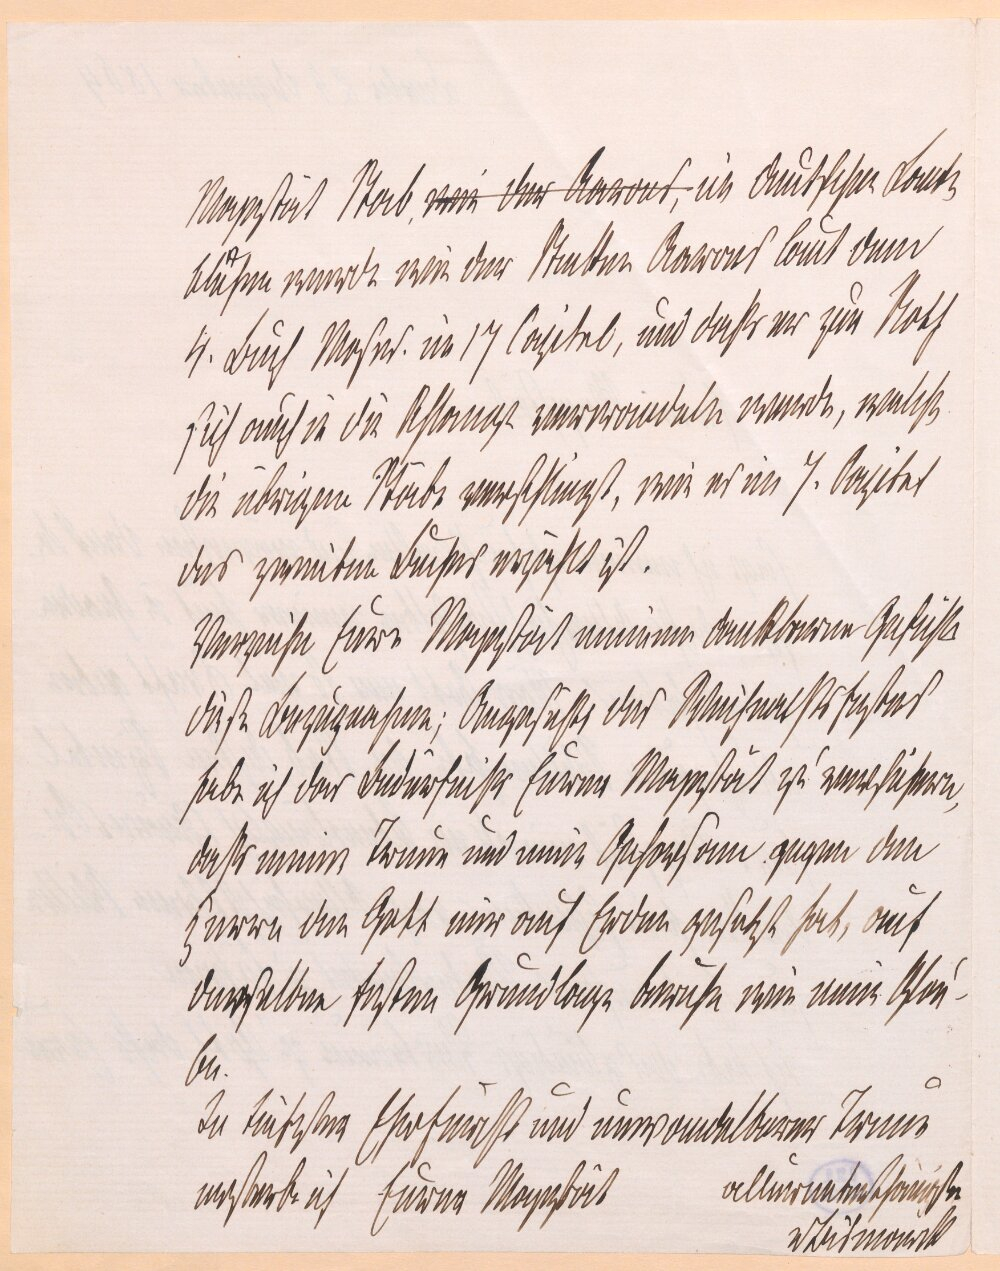 Majestät Stab, wie der Aarons, in deutschen Landen
blühen werde wie der Stecken Aarons laut dem
4. Buch Moses. im 17 Capitel, und daß er zur Noth
sich auch in die Schlange verwandeln werde, welche
die übrigen Stäbe verschlingt, wie es im 7. Capitel
des zweiten Buches erzählt ist.
Verzeihn Eure Majestät meinem dankbaren Gefühle
diese Bezugnahme; Angesichts des Weihnachtsfestes
habe ich das Bedürfniß Eurer Majestät zu versichern,
daß meine Treue und mein Gehorsam gegen den
Herrn den Gott mir auf Erden gesetzt hat, auf
derselben festen Grundlage beruhe wie mein Glau-
be.
In tiefster Ehrfurcht und unwandelbarer Treue
ersterbe ich Eurer Majestät allerunterthänigster
vBismarck